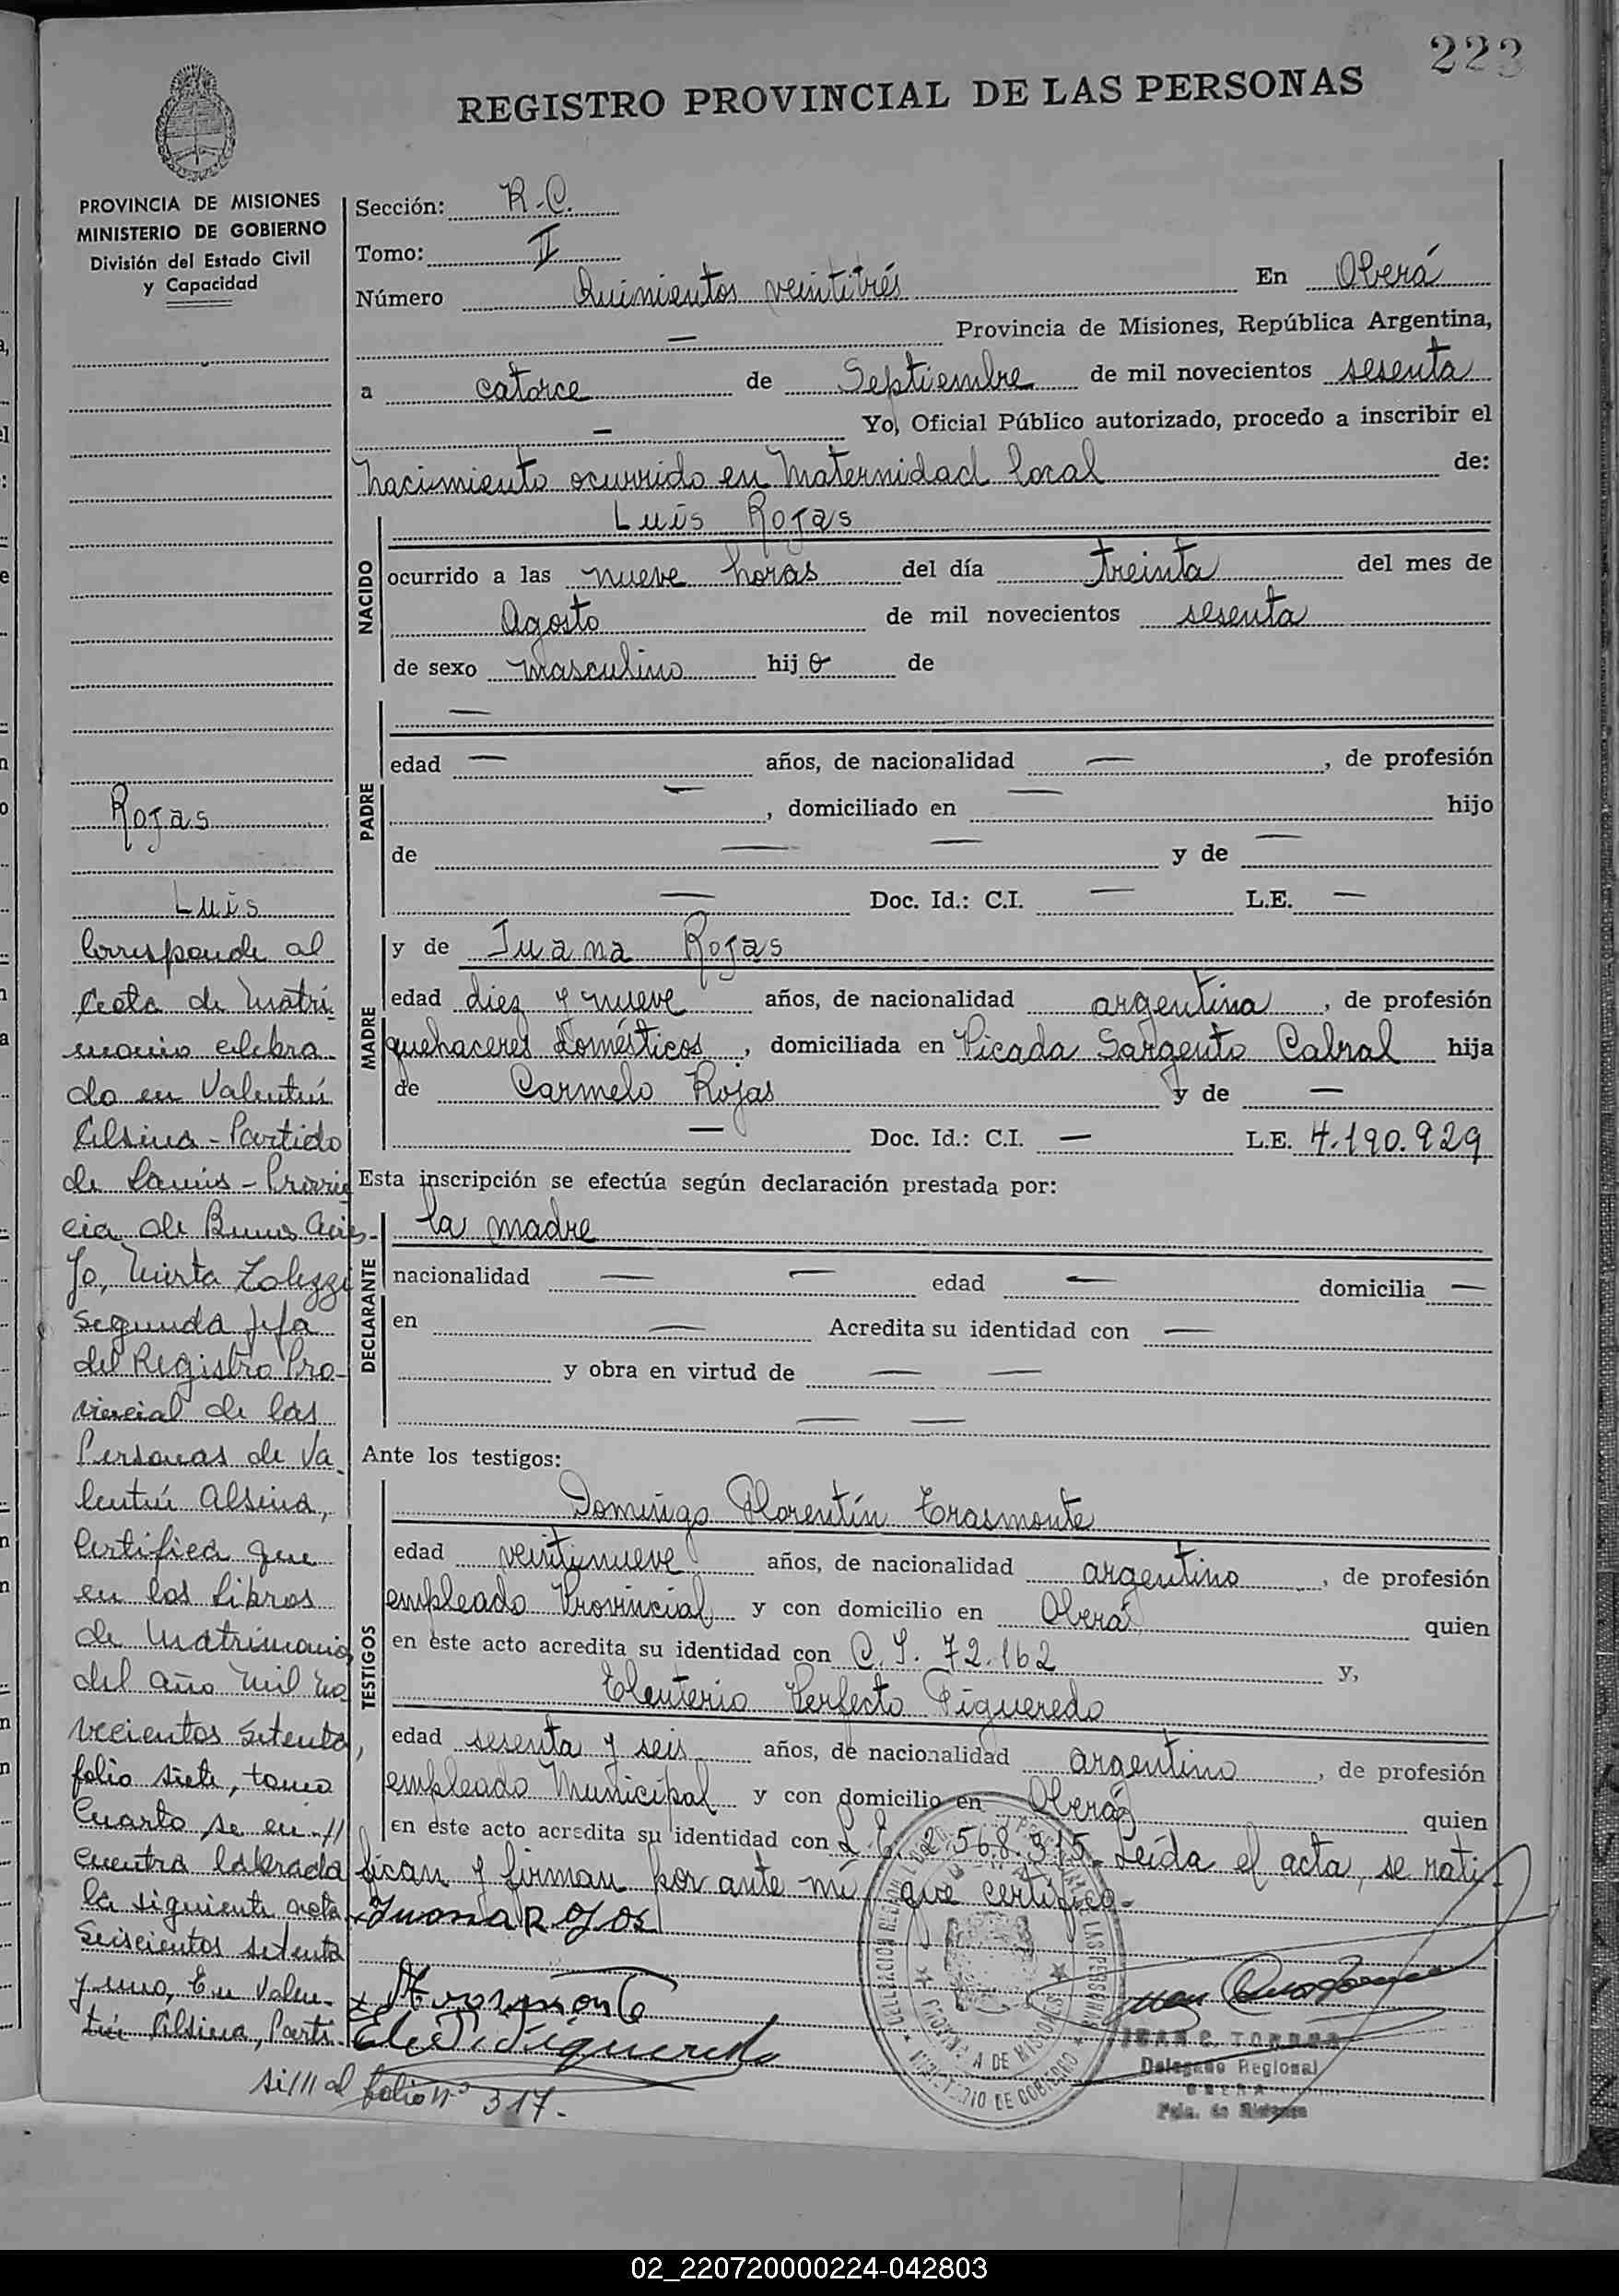 223
REGISTRO PROVINCIAL DE LAS PERSONAS
PROVINCIA DE MISIONES
MINISTERIO DE GOBIERNO
División del Estado Civil
y Capacidad
Sección: R.C.
Tomo: II
Número Quinientos veintitrés En Oberá
— Provincia de Misiones, República Argentina,
a catorce de Septiembre de mil novecientos sesenta
— Yo, Oficial Público autorizado, procedo a inscribir el
nacimiento ocurrido en Maternidad local de:
NACIDO
Luis Rojas
ocurrido a las nueve horas del día treinta del mes de
Agosto de mil novecientos sesenta
de sexo masculino hijo de
PADRE
—
edad — años, de nacionalidad —, de profesión
—, domiciliado en — hijo
de — — y de —
— Doc. Id.: C.I. — L.E. —
MADRE
y de Juana Rojas
edad diez y nueve años, de nacionalidad argentina, de profesión
quehaceres domésticos, domiciliada en Picada Sargento Cabral hija
de Carmelo Rojas y de —
— Doc. Id.: C.I. — L.E. 4.190.929
Esta inscripción se efectúa según declaración prestada por:
DECLARANTE
la madre
nacionalidad — — edad — domicilia —
en — Acredita su identidad con —
y obra en virtud de — —
— —
Ante los testigos:
TESTIGOS
Domingo Florentín Trasmonte
edad veintinueve años, de nacionalidad argentino, de profesión
empleado Provincial y con domicilio en Oberá quien
en este acto acredita su identidad con C.I. 72.162 y,
Eleuterio Perfecto Figueredo
edad sesenta y seis años, de nacionalidad argentino, de profesión
empleado Municipal y con domicilio en Oberá quien
en este acto acredita su identidad con L.E. 2.568.315. Leída el acta, se rati-
fican y firman por ante mí que certifico.-
Juana Rojas
JUAN C. TORRES
Delegado Regional
OBERA
Pcia. de Misiones
Rojas
Luis
Corresponde al
Acta de Matri
monio celebra
do en Valentín
Alsina - Partido
de Lanús - Provin
cia de Buenos Aires-
Yo, Mirta Zolezzi
Segunda Jefa
del Registro Pro-
vincial de las
Personas de Va
lentín Alsina,
Certifica que
en los Libros
de Matrimonios
del año mil no
vecientos setenta,
folio siete, tomo
Cuarto se en-//
cuentra labrada
la siguiente acta
Seiscientos setenta
y uno, En Valen-
tín Alsina, Parti-
si/// al folio Nº 317.-
02_220720000224-042803